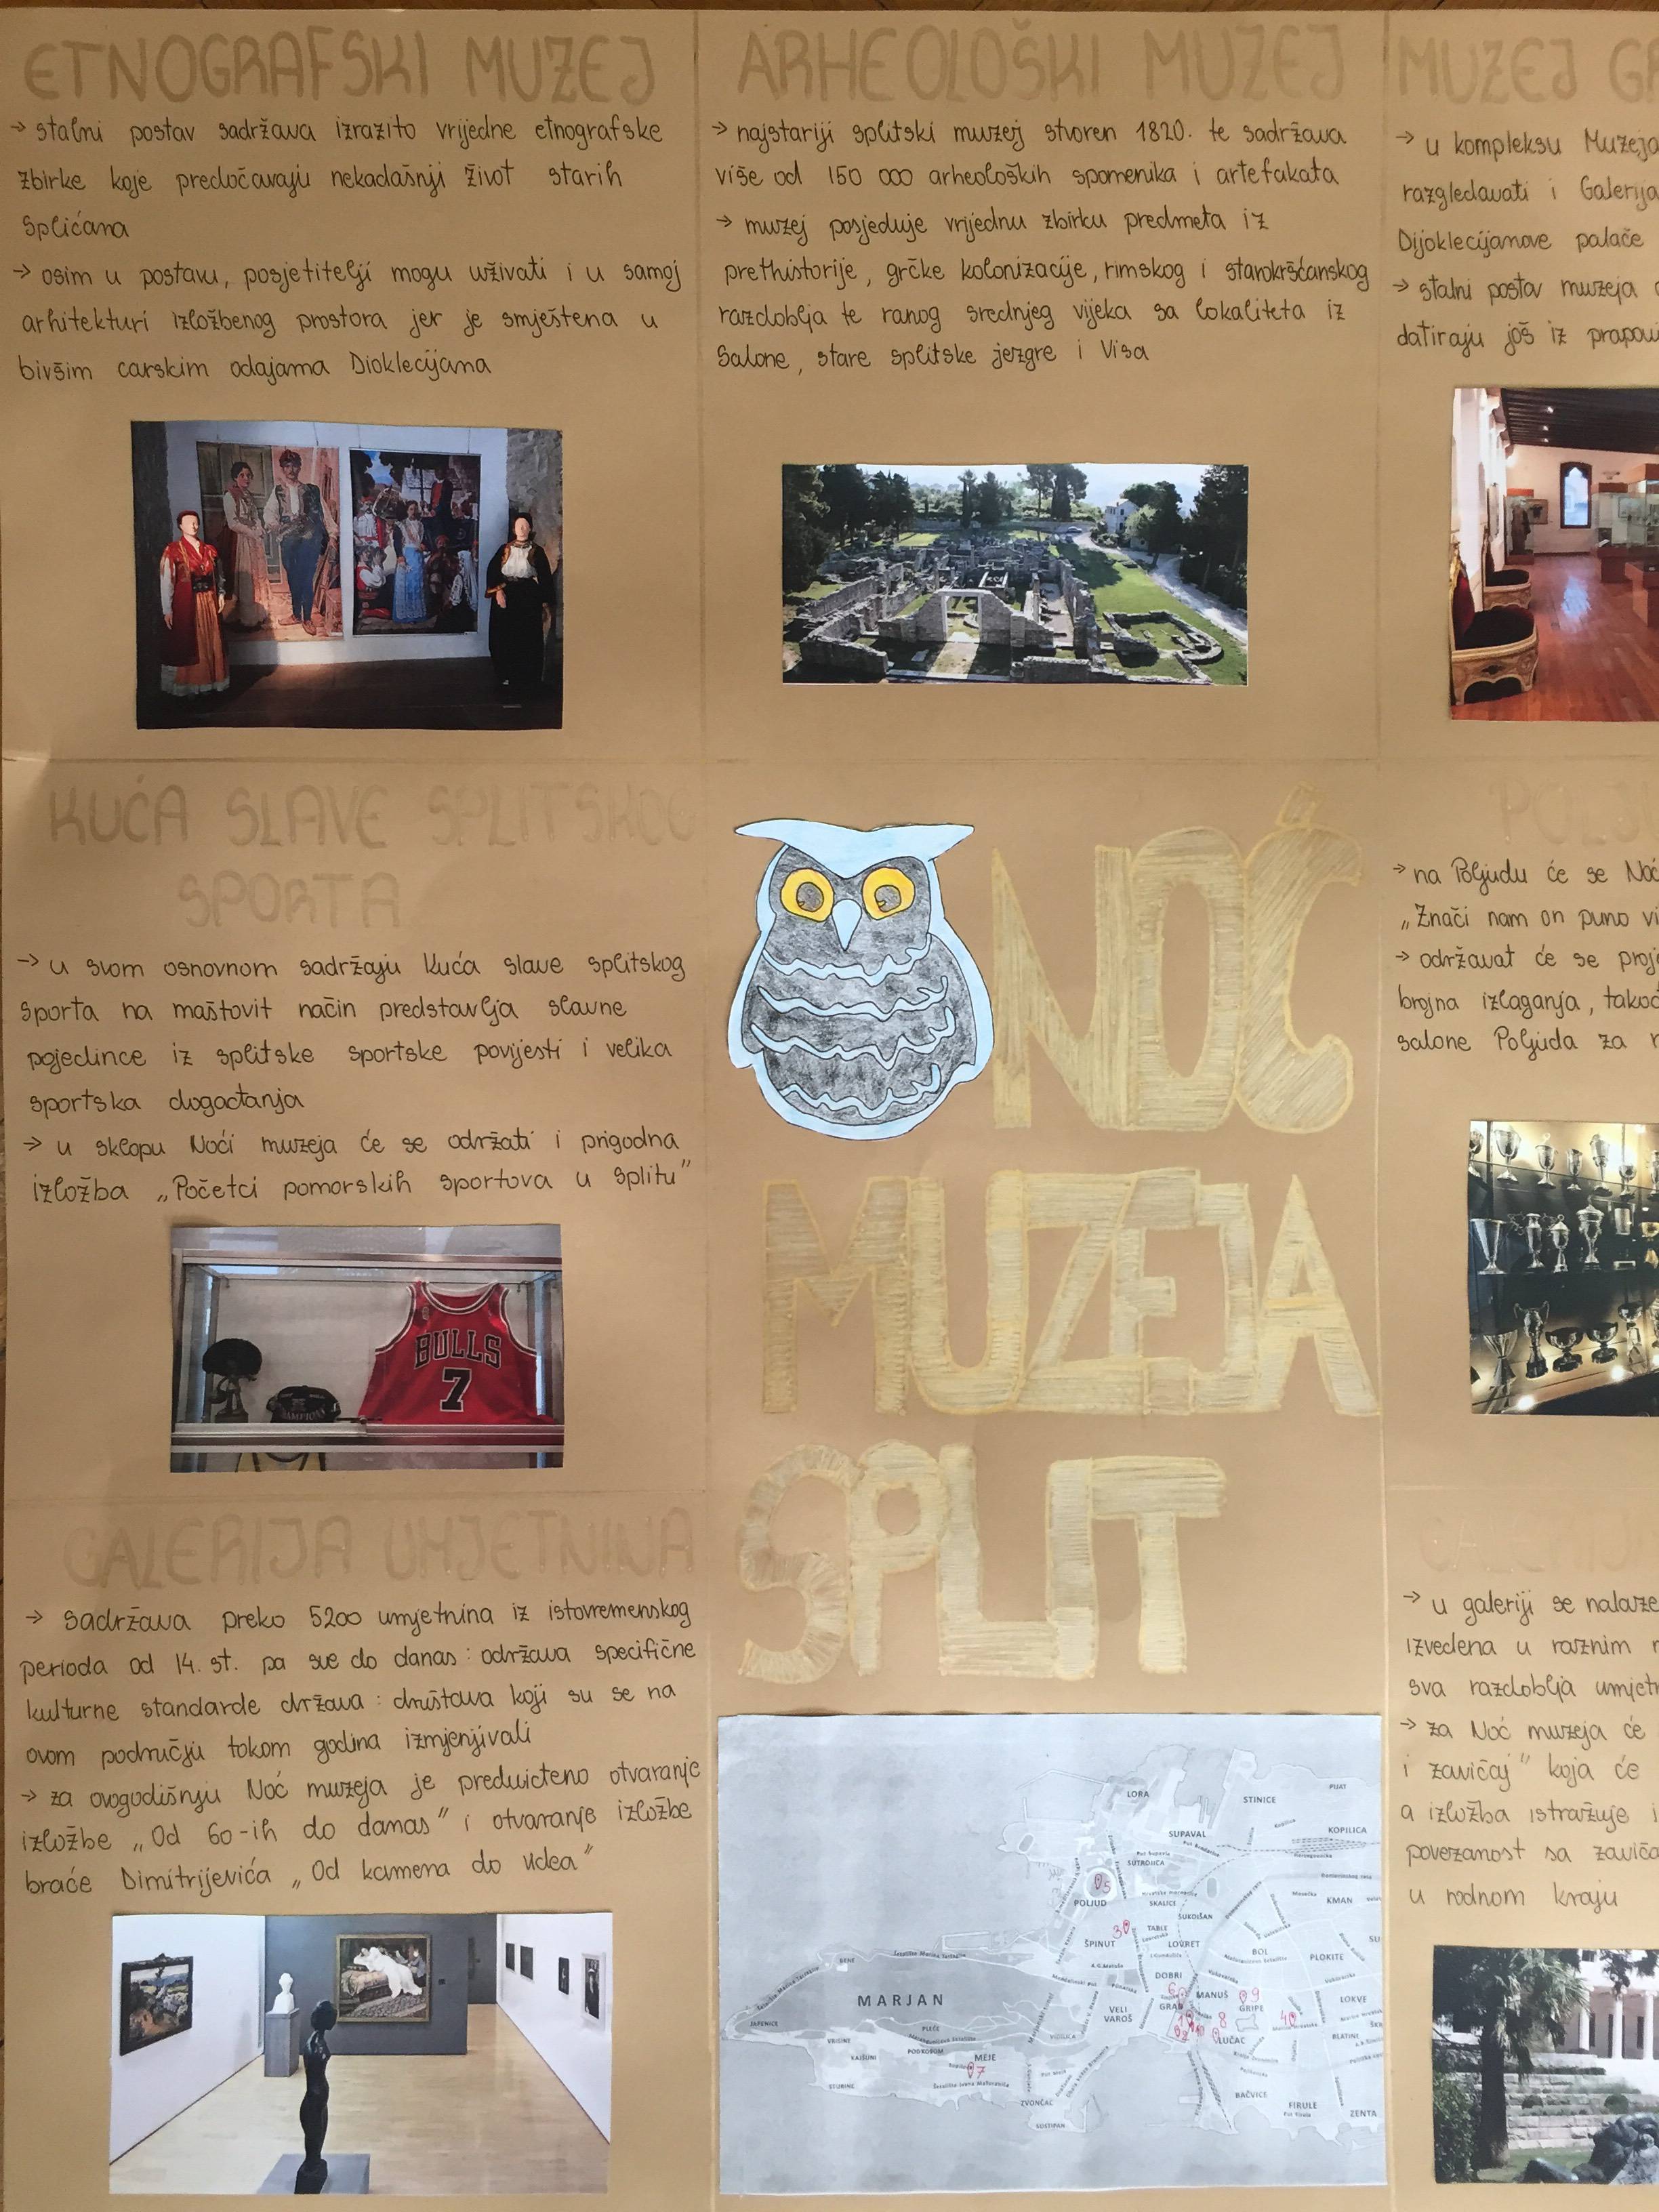 ETNOGRAFSKI MUZEJ
→ stalni postav sadržava izrazito vrijedne etnografske
zbirke koje predočavaju nekadašnji život starih
Splićana
→ osim u postavu, posjetitelji mogu uživati i u samoj
arhitekturi izložbenog prostora jer je smještena u
bivšim carskim odajama Dioklecijana
ARHEOLOŠKI MUZEJ
→ najstariji splitski muzej stvoren 1820. te sadržava
više od 150 000 arheoloških spomenika i artefakata
→ muzej posjeduje vrijednu zbirku predmeta iz
prethistorije, grčke kolonizacije, rimskog i starokršćanskog
razdoblja te ranog srednjeg vijeka sa lokaliteta iz
Salone, stare splitske jezgre i Visa
MUZEJ GR
→ u kompleksu Muzeja
razgledavati i Galerija
Dijoklecijanove palače
→ stalni postav muzeja
datiraju još iz prapovi
KUĆA SLAVE SPLITSKOG
SPORTA
→ u svom osnovnom sadržaju Kuća slave splitskog
sporta na maštovit način predstavlja slavne
pojedince iz splitske sportske povijesti i velika
sportska događanja
→ u sklopu Noći muzeja će se održati i prigodna
izložba „Početci pomorskih sportova u Splitu"
BULLS
7
NOĆ
MUZEJA
SPLIT
POLJU
→ na Poljudu će se Noć
„Znači nam on puno vi
→ održavat će se proje
brojna izlaganja, takođ
salone Poljuda za
GALERIJA UMJETNINA
→ sadržava preko 5200 umjetnina iz istovremenskog
perioda od 14. st. pa sve do danas : održava specifične
kulturne standarde država : društava koji su se na
ovom području tokom godina izmjenjivali
→ za ovogodišnju Noć muzeja je predviđeno otvaranje
izložbe „Od 60-ih do danas" i otvaranje izložbe
braće Dimitrijevića „Od kamena do udea"
LORA
STINICE
PUAT
SUPAVAL
KOPILICA
SUTROJICA
5
POLJUD
SKALICE
KMAN
SUKOIŠAN
3
TABLE
ŠPINUT
LOVRET
BOL
PLOKITE
BENE
DOBRI
MARJAN
6
MANUŠ
9
GRAD
GRIPE
LOKVE
VELI
VAROŠ
8
4
LUČAC
BLATINE
JAPJENICE
KAŠJUNI
MEJE
7
ZVONČAC
BAČVICE
FIRULE
ZENTA
SUSTIPAN
GALERIJ
→ u galeriji se nalaze
izvedena u raznim
sva razdoblja umjetn
→ za Noć muzeja će
i zavičaj" koja će
a izložba istražuje i
povezanost sa zaviča
u rodnom kraju